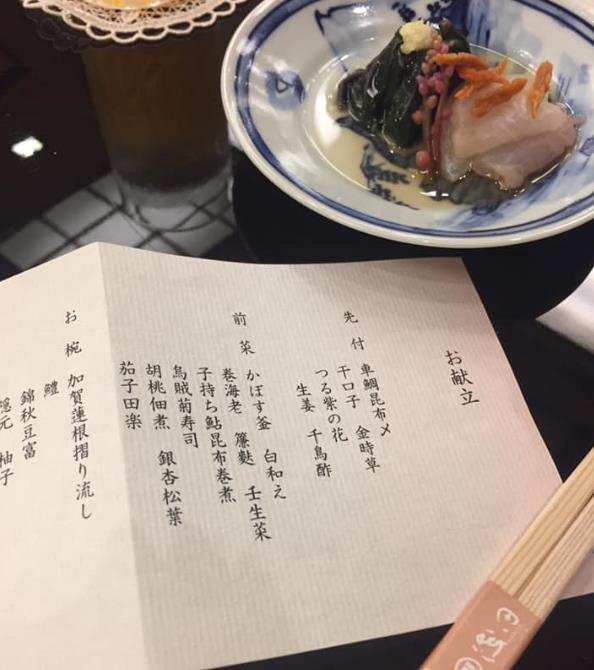 お献立
先付
車鯛昆布〆 金時草
干口子
つる紫の花
生姜 千鳥酢
前菜
かぼす釜 白和え
巻海老 簾麩 壬生菜
子持ち鮎昆布巻煮
烏賊菊寿司
胡桃佃煮 銀杏松葉
茄子田楽
お椀
加賀蓮根摺り流し
鱧
錦秋豆富
隠元 柚子